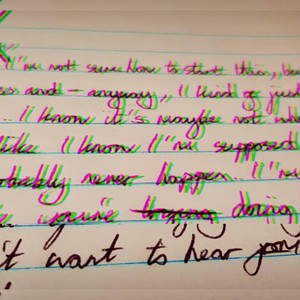 I'm not sure how to start this,
and - anyway, I kind of just
I know it's maybe not wh
like I know I'm supposed
obably never happen.. I'm
you're trying doing
't want to hear